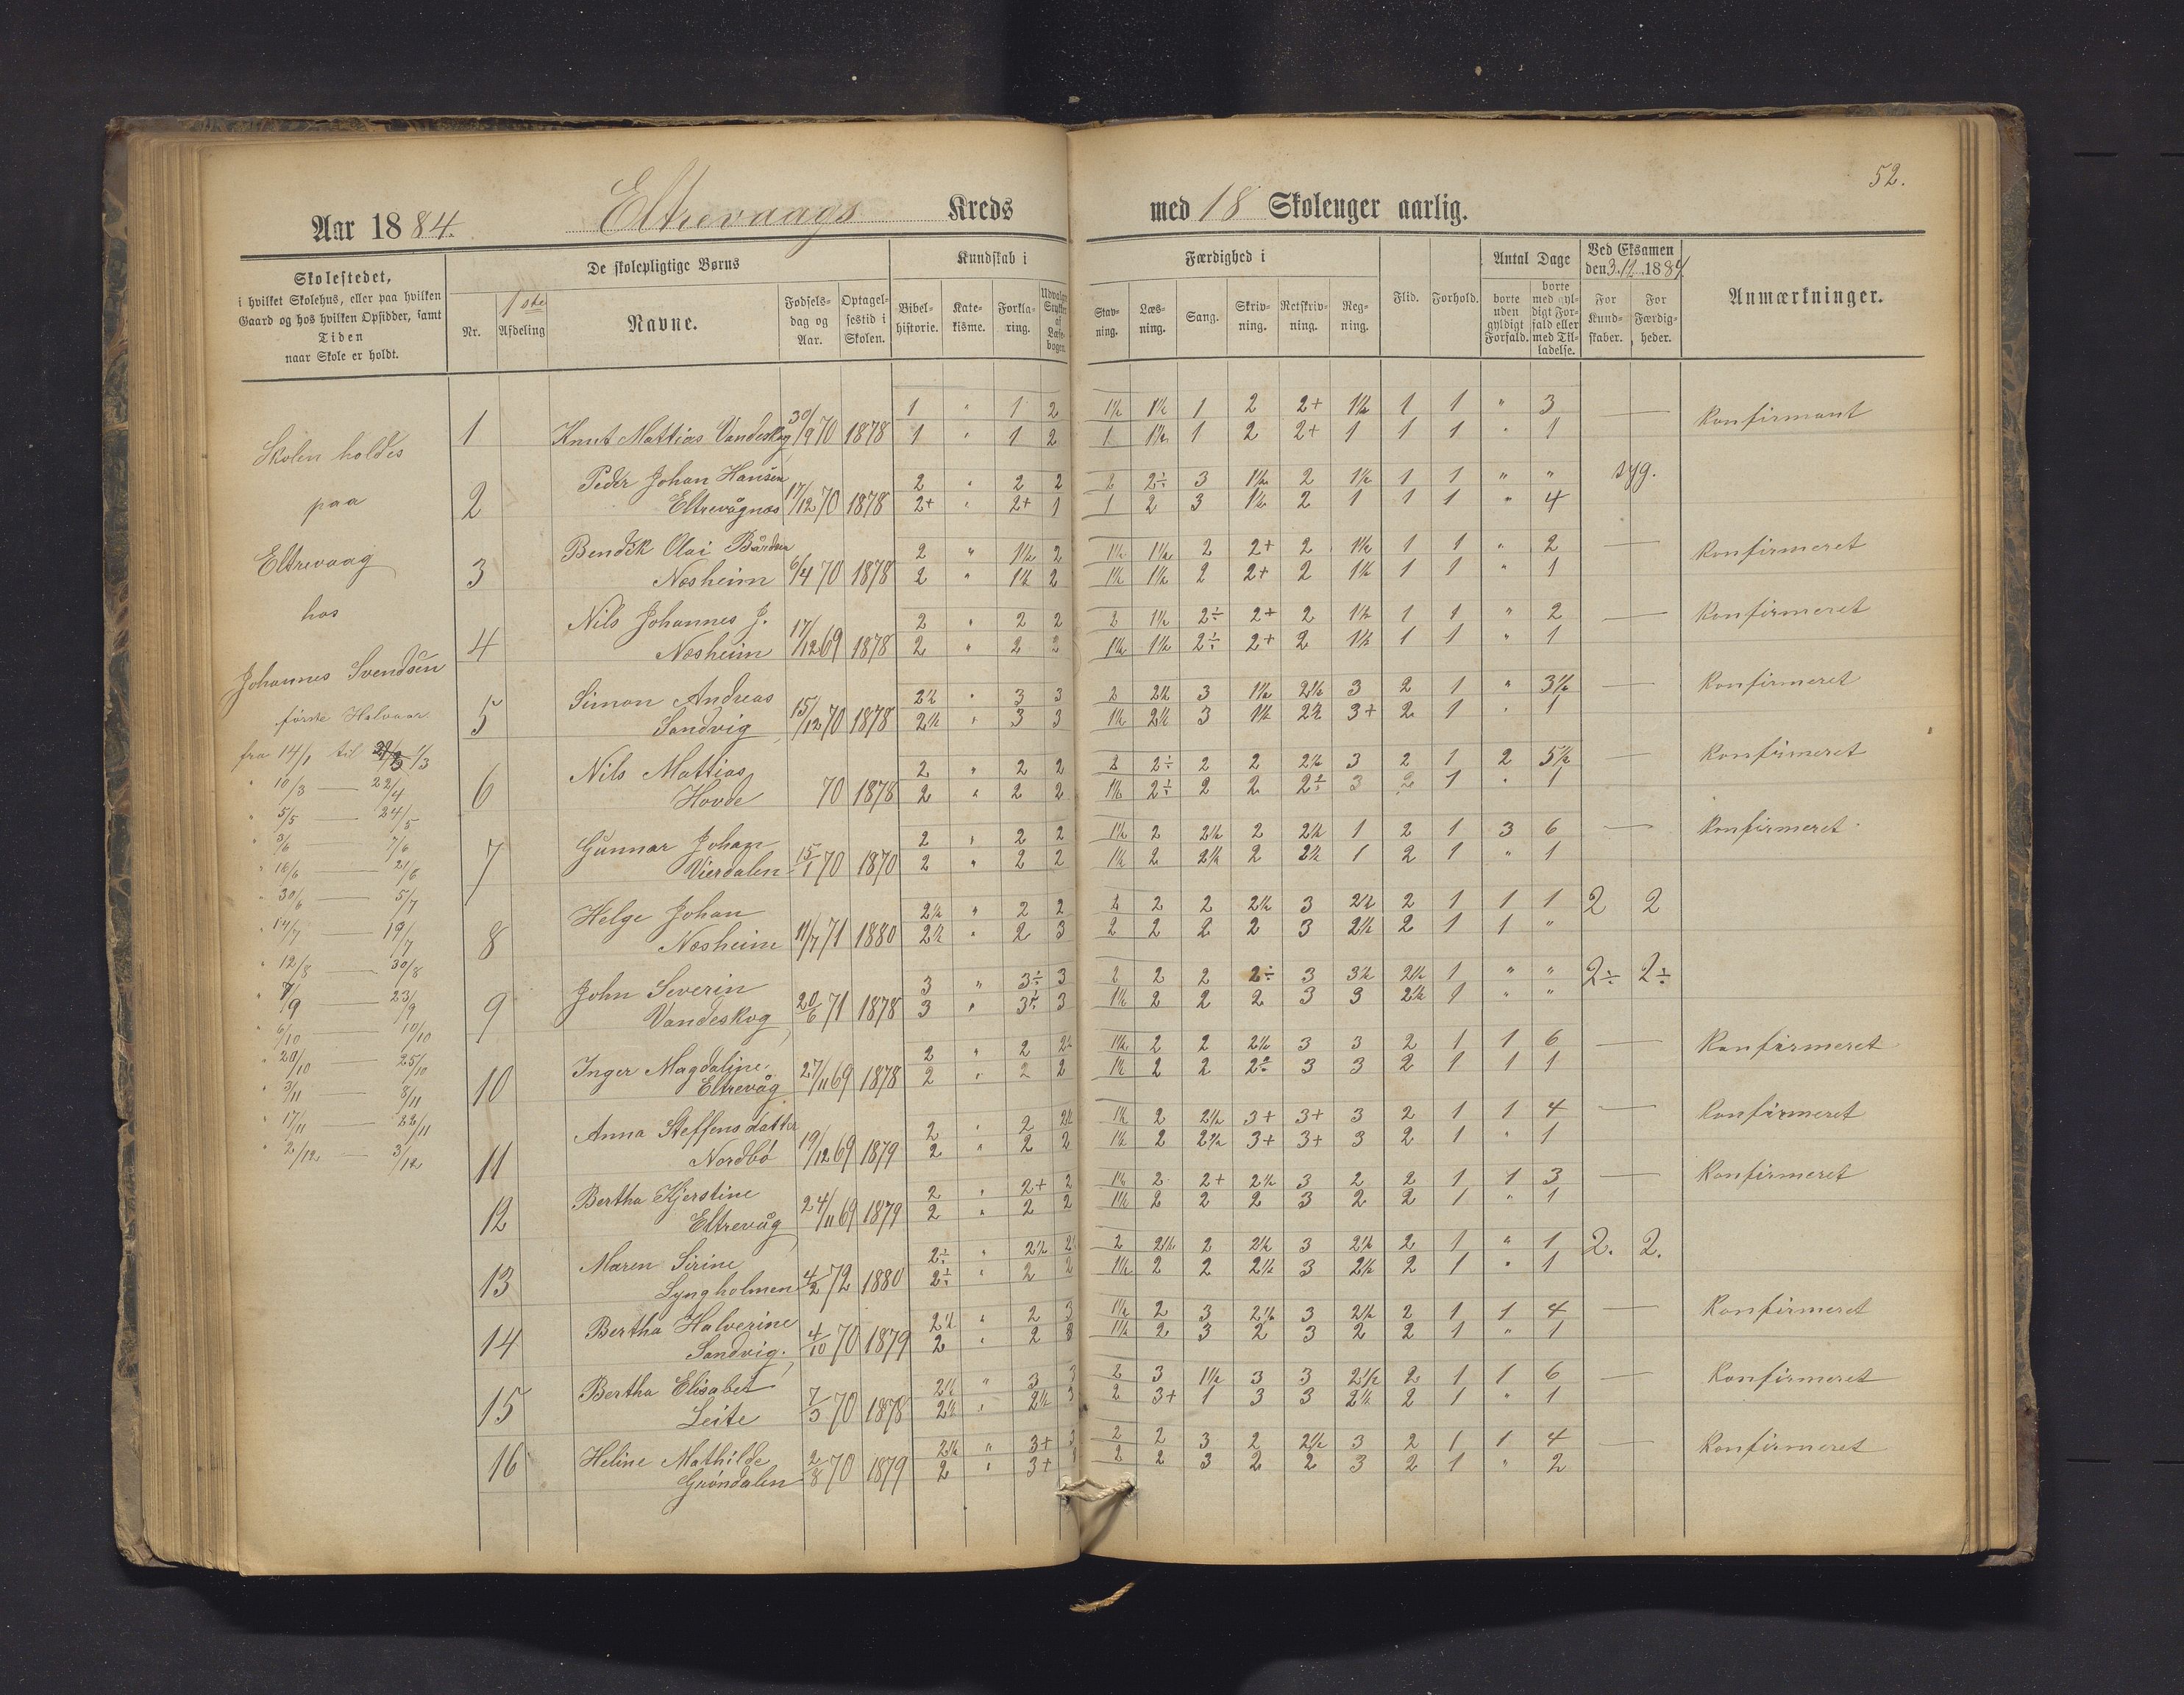 52.
Aar 1884. Eltrevaags Kreds med 18 Skoleuger aarlig.
Skolestedet, i hvilket Skolehus, eller paa hvilken Gaard og hos hvilken Opsidder, samt Tiden naar Skole er holdt.
De skolepligtige Børns
Nr. 1ste Afdeling Navne. Fødselsdag og Aar. Optagelsestid i Skolen.
Kundskab i
Bibelhistorie. Katekisme. Forklaring. Udvalgte Stykker af Læsebogen.
Færdighed i
Stavning. Læsning. Sang. Skrivning. Retskrivning. Regning.
Flid. Forhold.
Antal Dage
borte uden gyldigt Forfald. borte med gyldigt Forfald eller med Tilladelse.
Ved Eksamen den 3/12 1884
For Kundskaber. For Færdigheder.
Anmærkninger.
Skolen holdes
paa
Eltrevaag
hos
Johannes Svendsen
første Halvaar
fra 14/1 til 1/3
" 10/3 — 22/4
" 5/5 — 24/5
" 3/6 — 7/6
" 16/6 — 21/6
" 30/6 — 5/7
" 14/7 — 19/7
" 12/8 — 30/8
" 23/9
" 6/10 — 10/10
" 20/10 — 25/10
" 3/11 — 8/11
" 17/11 — 22/11
" 2/12 — 3/12
1 " 1 2 1½ 1½ 1 2 2+ 1½ 1 1 " 3 — Konfirmant
1 Knut Mattias Vandeskog 30/9 70 1878 1 " 1 2 1 1½ 1 2 2+ 1 1 1 " 1
Peder Johan Hansen 2 " 2 2 2 2÷ 3 1½ 2 1½ 1 1 " " syg.
2 Eltrevågnæs 17/12 70 1878 2+ " 2+ 1 1 2 3 1½ 2 1 1 1 " 4
Bendik Olai Bårdsen 2 " 1½ 2 1½ 1½ 2 2+ 2 1½ 1 1 " 2 — Konfirmeret
3 Næsheim 6/4 70 1878 2 " 1½ 2 1½ 1½ 2 2+ 2 1½ 1 1 " 1
Nils Johannes J. 2 " 2 2 2 1½ 2÷ 2+ 2 1½ 1 1 " 2 — Konfirmeret
4 Næsheim 17/12 69 1878 2 " 2 2 1½ 1½ 2÷ 2+ 2 1½ 1 1 " 1
Simon Andreas 2½ " 3 3 2 2½ 3 1½ 2½ 3 2 1 " 3½ — Konfirmeret
5 Sandvig 15/12 70 1878 2½ " 3 3 1½ 2½ 3 1½ 2½ 3+ 2 1 " 1
Nils Mattias 2 " 2 2 2 2÷ 2 2 2½ 3 2 1 2 5½ — Konfirmeret
6 Hovde 70 1878 2 " 2 2 1½ 2÷ 2 2 2÷ 3 2 1 " 1
Gunnar Johan 2 " 2 2 1½ 2 2½ 2 2½ 1 2 1 3 6 — Konfirmeret
7 Vierdalen 15/1 70 1870 2 " 2 2 1½ 2 2½ 2 2½ 1 2 1 " 1
Helge Johan 2½ " 2 2 2 2 2 2½ 3 2½ 2 1 1 1 2 2
8 Næsheim 11/7 71 1880 2½ " 2 3 2 2 2 2 3 2½ 2 1 1 "
John Severin 3 " 3÷ 3 2 2 2 2÷ 3 3½ 2½ 1 " " 2÷ 2÷
9 Vandeskog 20/6 71 1878 3 " 3÷ 3 1½ 2 2 2 3 3 2½ 1 " "
Inger Magdaline 2 " 2 2½ 1½ 2 2 2½ 3 3 2 1 1 6 — Konfirmeret
10 Eltrevåg 27/11 69 1878 2 " 2 2 1½ 2 2 2÷ 3 3 2 1 1 1
Anna Steffensdatter 2 " 2 2½ 1½ 2 2½ 3+ 3+ 3 2 1 1 4 — Konfirmeret
11 Nordbö 19/12 69 1879 2 " 2 2 1½ 2 2½ 3+ 3+ 3 2 1 " 1
Bertha Kjerstine 2 " 2+ 2 1½ 2 2+ 2½ 3 2 2 1 1 3 — Konfirmeret
12 Eltrevåg 24/11 69 1879 2 " 2 2 1½ 2 2 2 3 2 2 1 " 1
Maren Sirine 2÷ " 2½ 2 2 2½ 2 2½ 3 2½ 2 1 " 1 2. 2.
13 Lyngholmen 4/2 72 1880 2÷ " 2 2 1½ 2 2 2½ 3 2½ 2 1 " 1
Bertha Halverine 2½ " 2 3 1½ 2 3 2½ 3 2½ 2 1 1 4 — Konfirmeret
14 Sandvig. 4/10 70 1879 2 " 2 3 1½ 2 3 2 3 2 2 1 " 1
Bertha Elisabet 2½ " 3 3 2 3 1½ 3 3 2½ 2 1 1 6 — Konfirmeret
15 Leite 7/3 70 1878 2½ " 2½ 3 2 3+ 1 3 3 2½ 2 1 " 1
Heline Mathilde 2½ " 3+ 3 2 2 3 2 2½ 3 2 1 1 4 — Konfirmeret
16 Gröndalen 2/8 70 1879 2 " 3+ 2 2 3 2 2 3 2 1 " 2